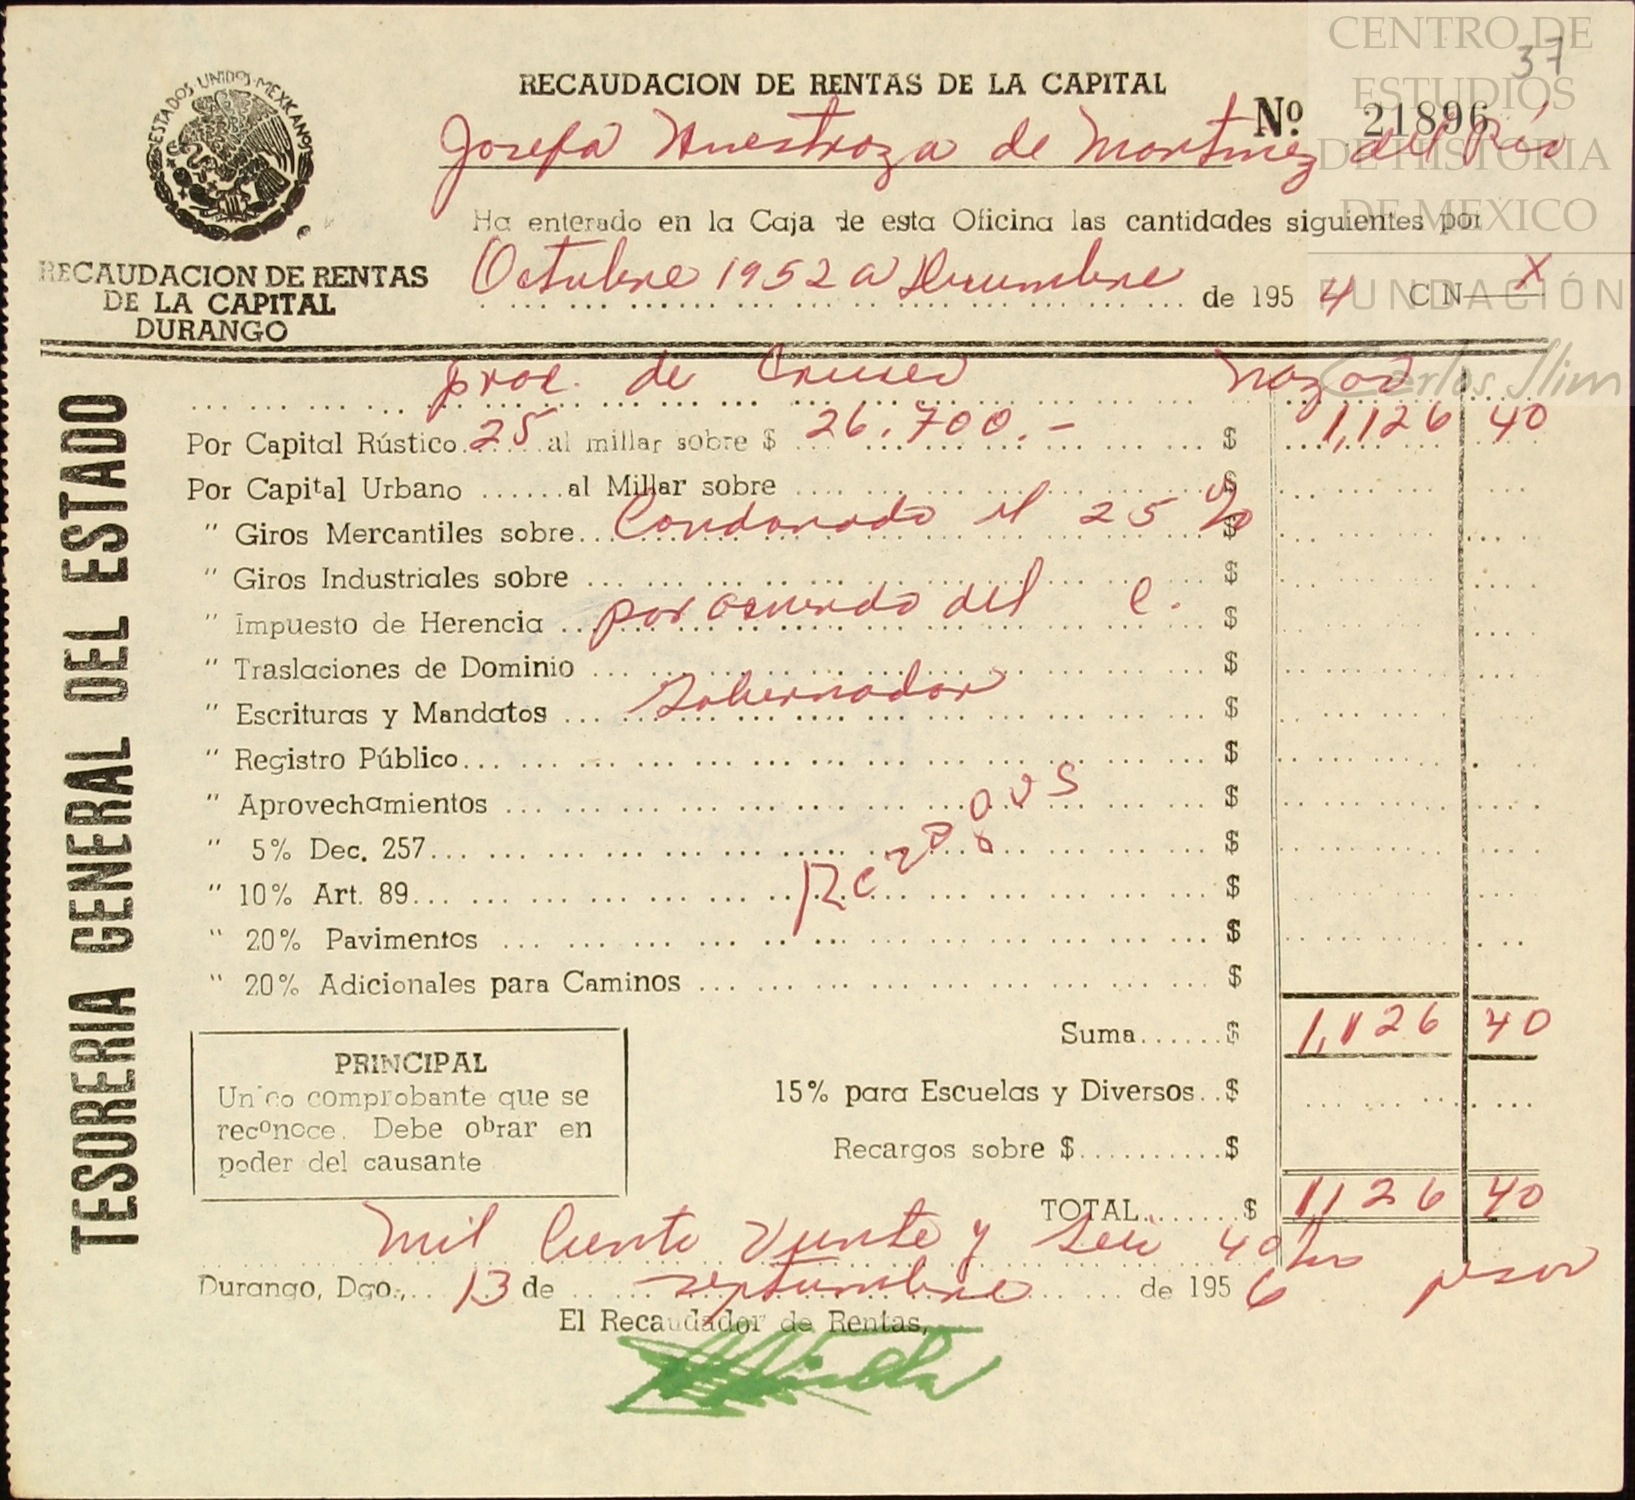 CENTRO DE
ESTUDIOS
DE HISTORIA
DE MEXICO
FUNDACIÓN
Carlos Slim
37
ESTADOS UNIDOS MEXICANOS
RECAUDACION DE RENTAS DE LA CAPITAL
Nº 21896
Josefa de Martinez del Río
Ha enterado en la Caja de esta Oficina las cantidades siguientes por
RECAUDACION DE RENTAS
DE LA CAPITAL
DURANGO
Octubre 1952 a Diciembre de 1954 CN X
TESORERIA GENERAL DEL ESTADO
de
Por Capital Rústico 25 al millar sobre $ 26.700.- $ 1,126 40
Por Capital Urbano ...... al Millar sobre $
" Giros Mercantiles sobre... Condonado el 25 % $
" Giros Industriales sobre ... $
" Impuesto de Herencia ... por acuerdo del C. $
" Traslaciones de Dominio ... $
" Escrituras y Mandatos ... Gobernador $
" Registro Público... $
" Aprovechamientos ... $
" 5% Dec. 257... $
" 10% Art. 89... $
Rezagos
" 20% Pavimentos ... $
" 20% Adicionales para Caminos ... $
Suma...... $ 1,126 40
15% para Escuelas y Diversos.. $
Recargos sobre $.......... $
TOTAL....... $ 1126 40
PRINCIPAL
Unico comprobante que se
reconoce. Debe obrar en
poder del causante
Mil Ciento Veinte y Seis 40 pesos
Durango, Dgo., 13 de septiembre de 1956
El Recaudador de Rentas,